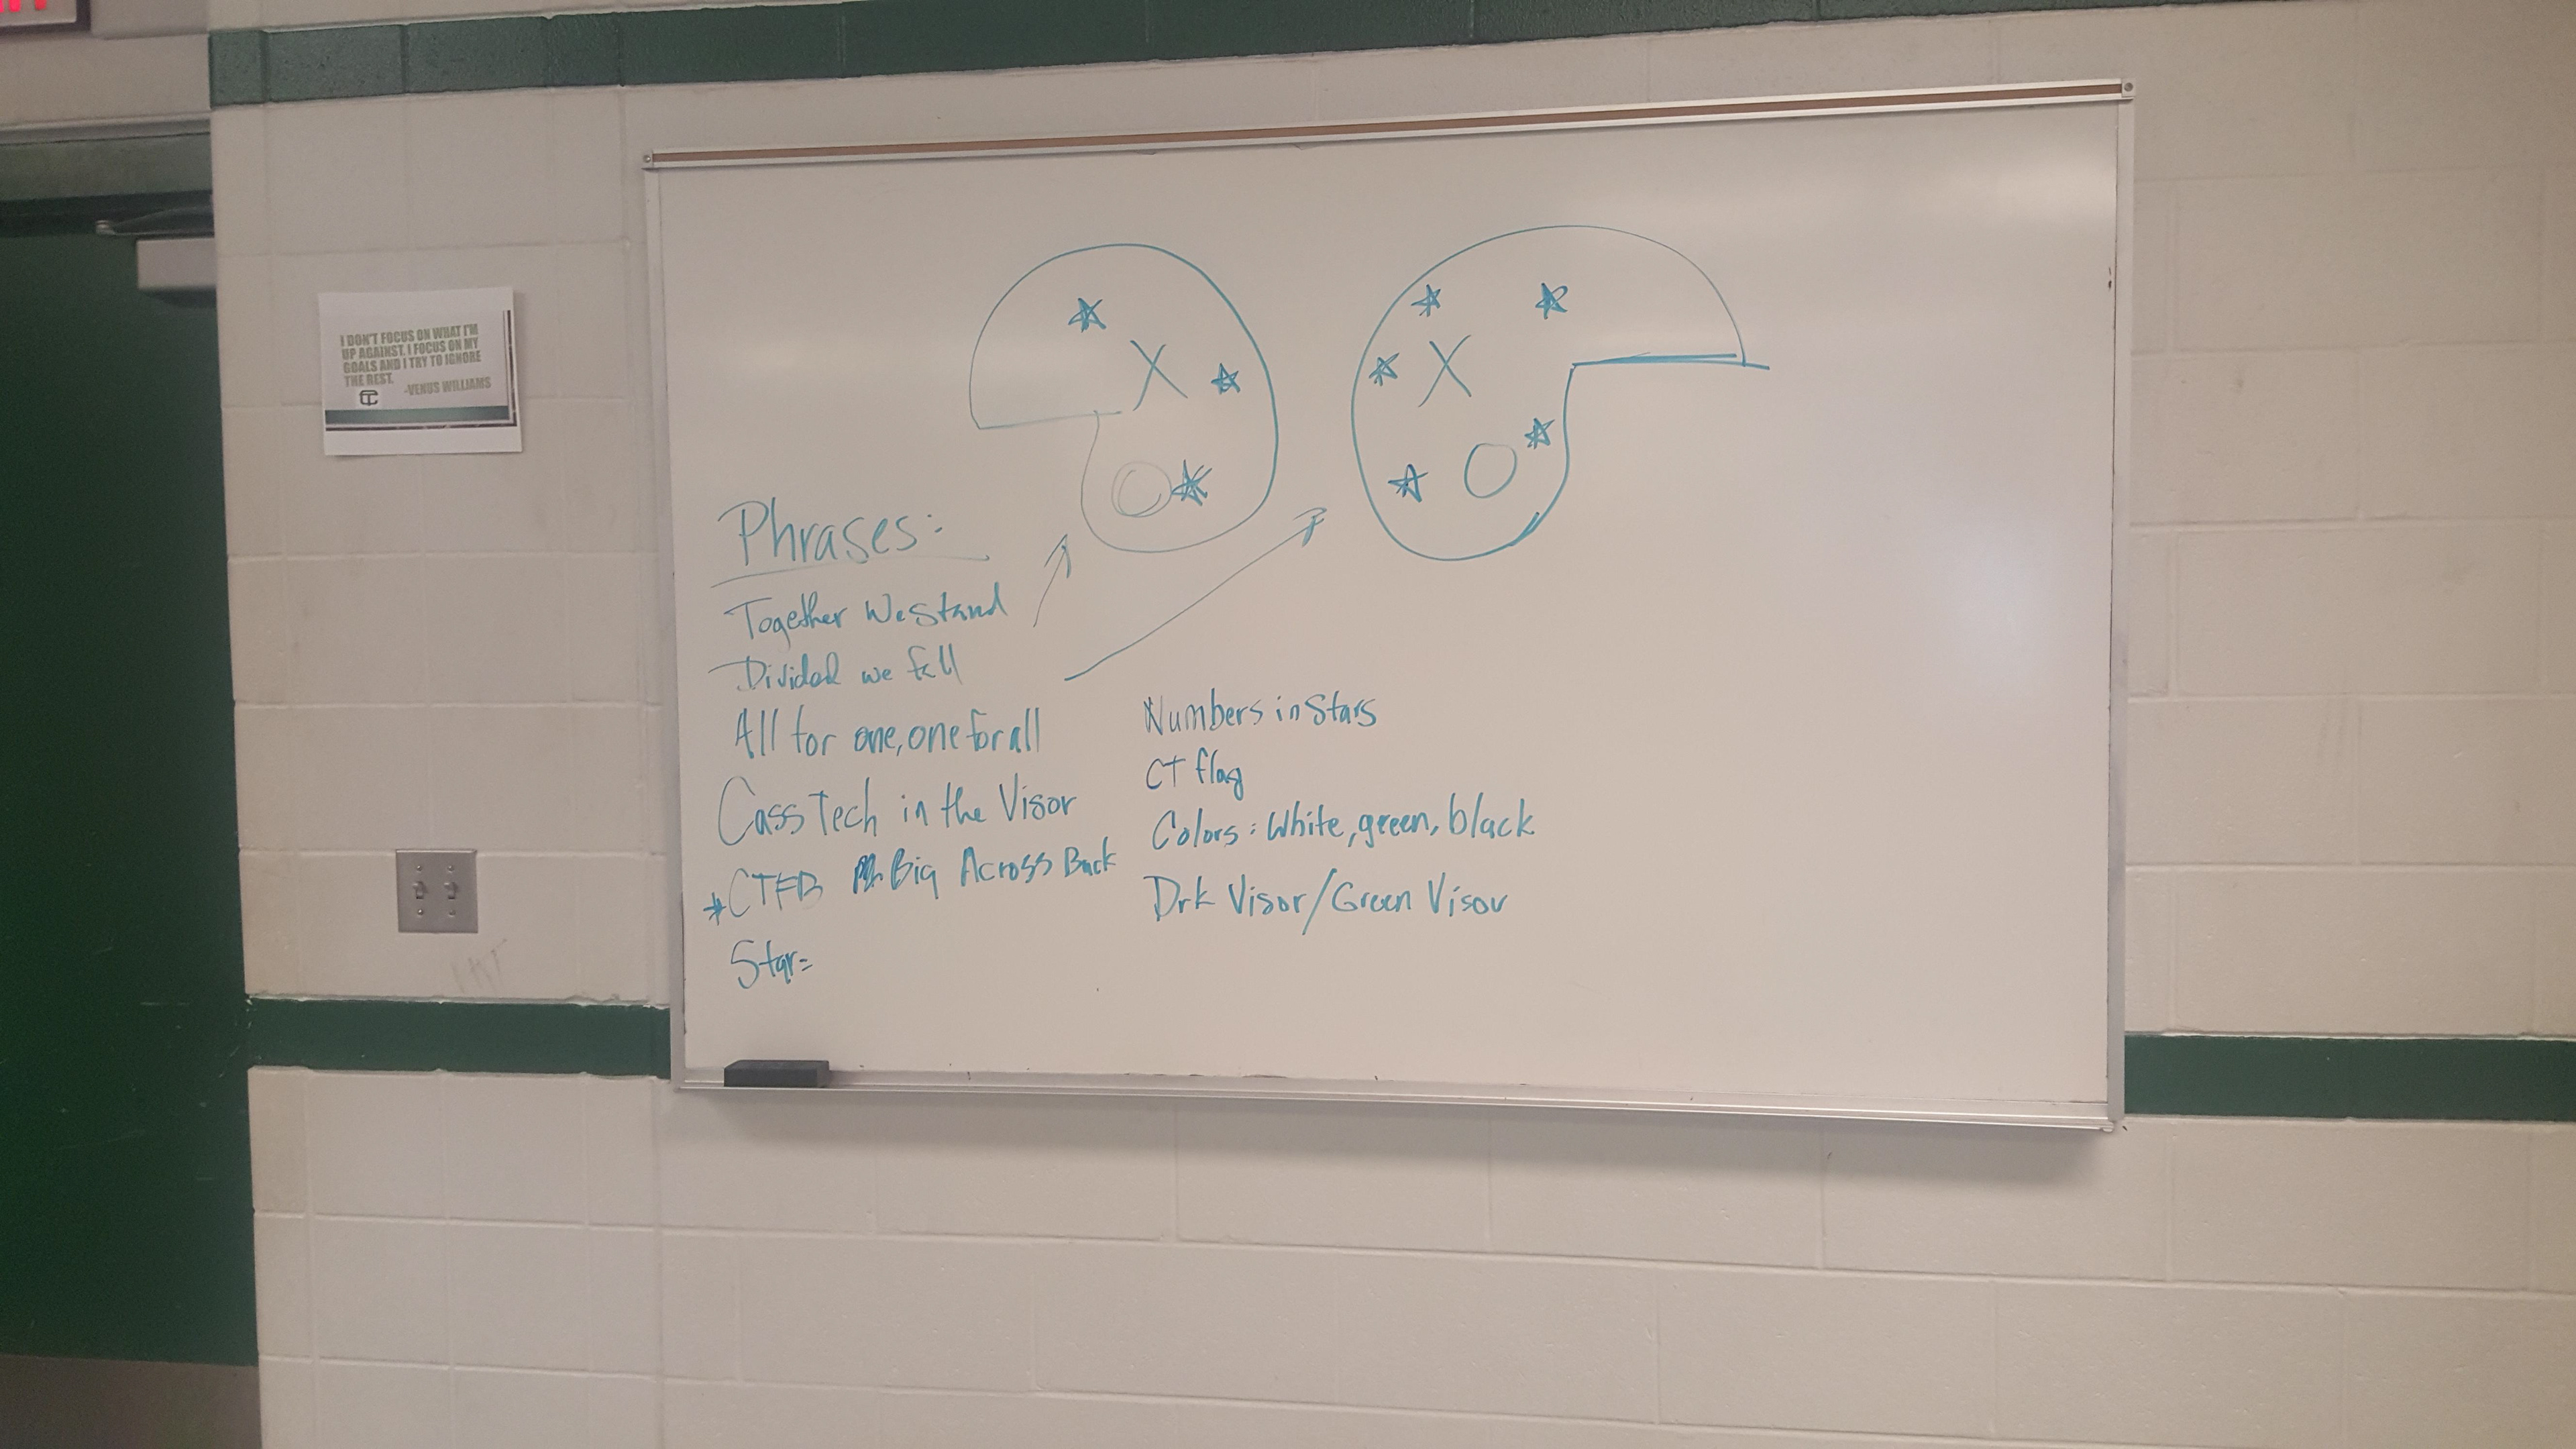 I DON'T FOCUS ON WHAT I'M
UP AGAINST. I FOCUS ON MY
GOALS AND I TRY TO IGNORE
THE REST.
-VENUS WILLIAMS
CT
X
X
Phrases:
Together We Stand
Divided we fall
All for one, one for all
Cass Tech in the Visor
*CTFB Big Across Back
Star=
Numbers in Stars
CT flag
Colors: White, green, black
Drk Visor/Green Visor